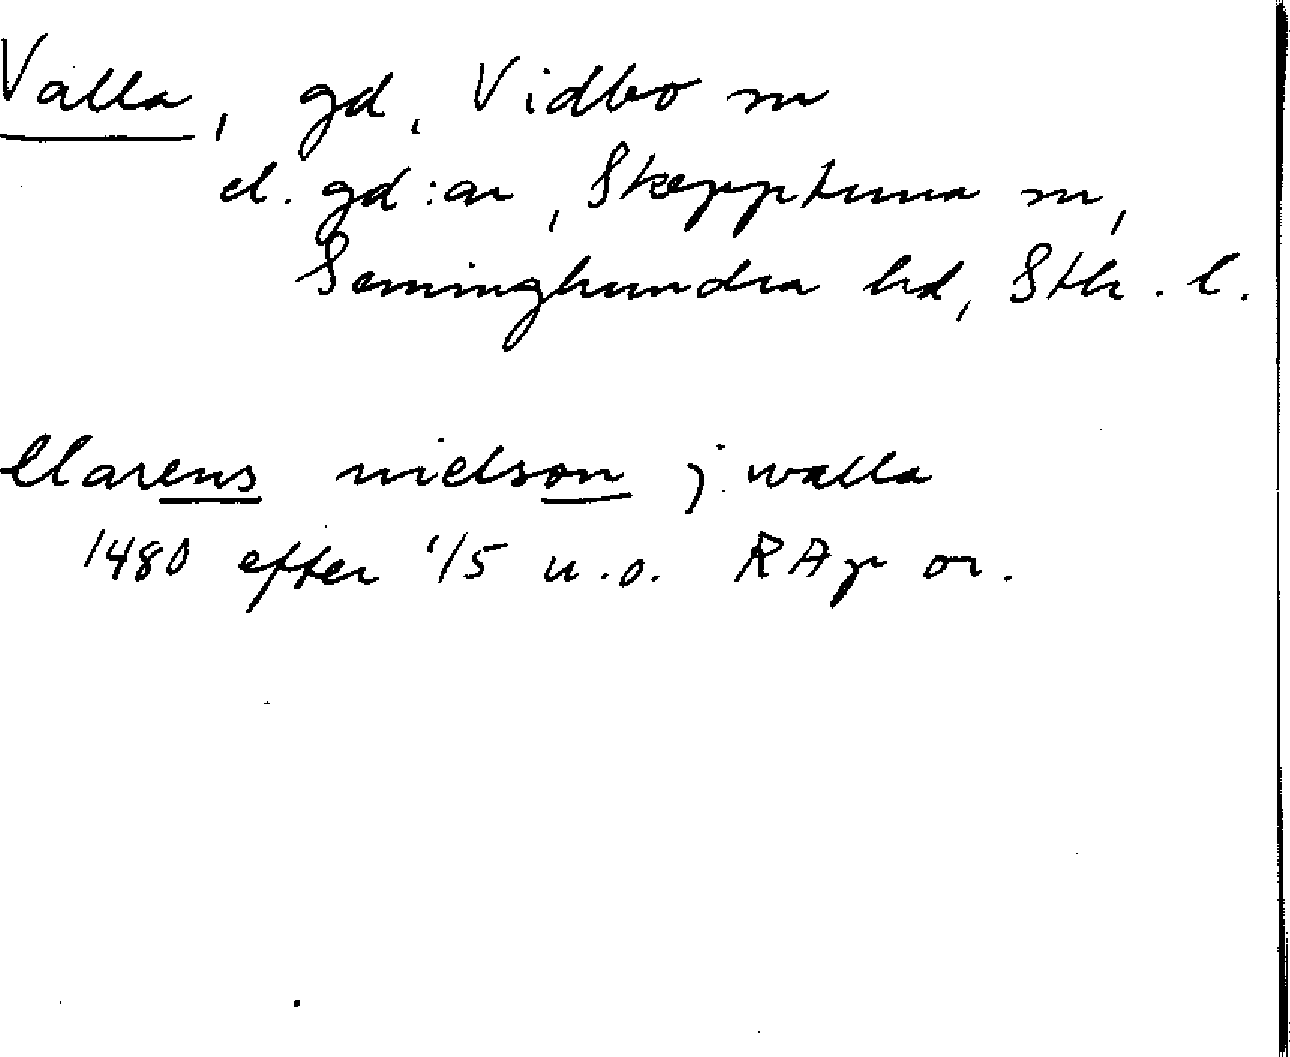 Valla, gd, Vidbo sn
el. gd:ar, Skepptuna sn,
Seminghundra hd, Sth. l.
Clarens nielson j walla
1480 efter 1/5 u.o. RAp or.